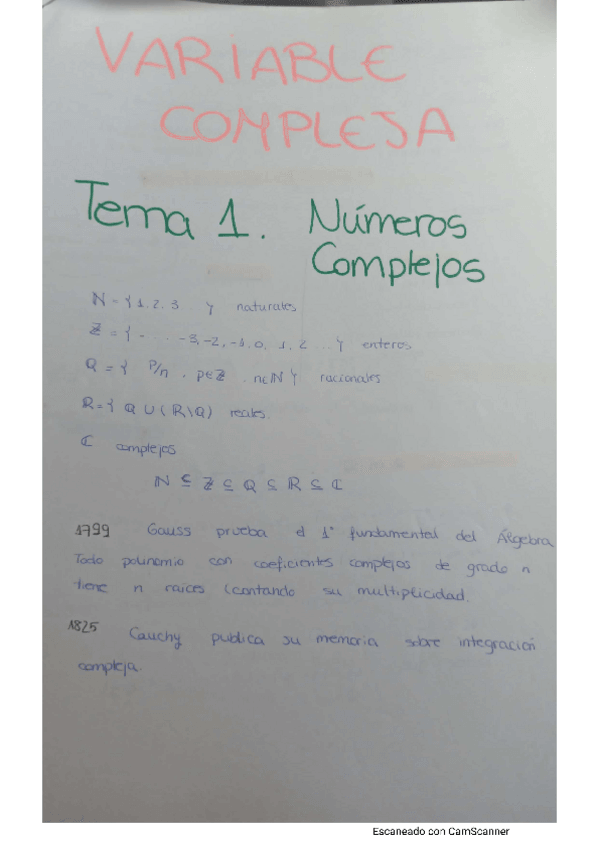 VARIABLE
COMPLEJA
Tema 1. Números
Complejos
ℕ = { 1, 2, 3 ... } naturales
ℤ = { - ... -3, -2, -1, 0, 1, 2 ... } enteros
Q = { P/n . p∈ℤ . n∈ℕ } racionales
ℝ = { Q ∪ (ℝ\Q) reales.
ℂ complejos
ℕ ⊆ ℤ ⊆ Q ⊆ ℝ ⊆ ℂ
1799 Gauss prueba el 1º fundamental del Álgebra.
Todo polinomio con coeficientes complejos de grado n
tiene n raíces (contando su multiplicidad.
1825 Cauchy publica su memoria sobre integración
compleja.
Escaneado con CamScanner